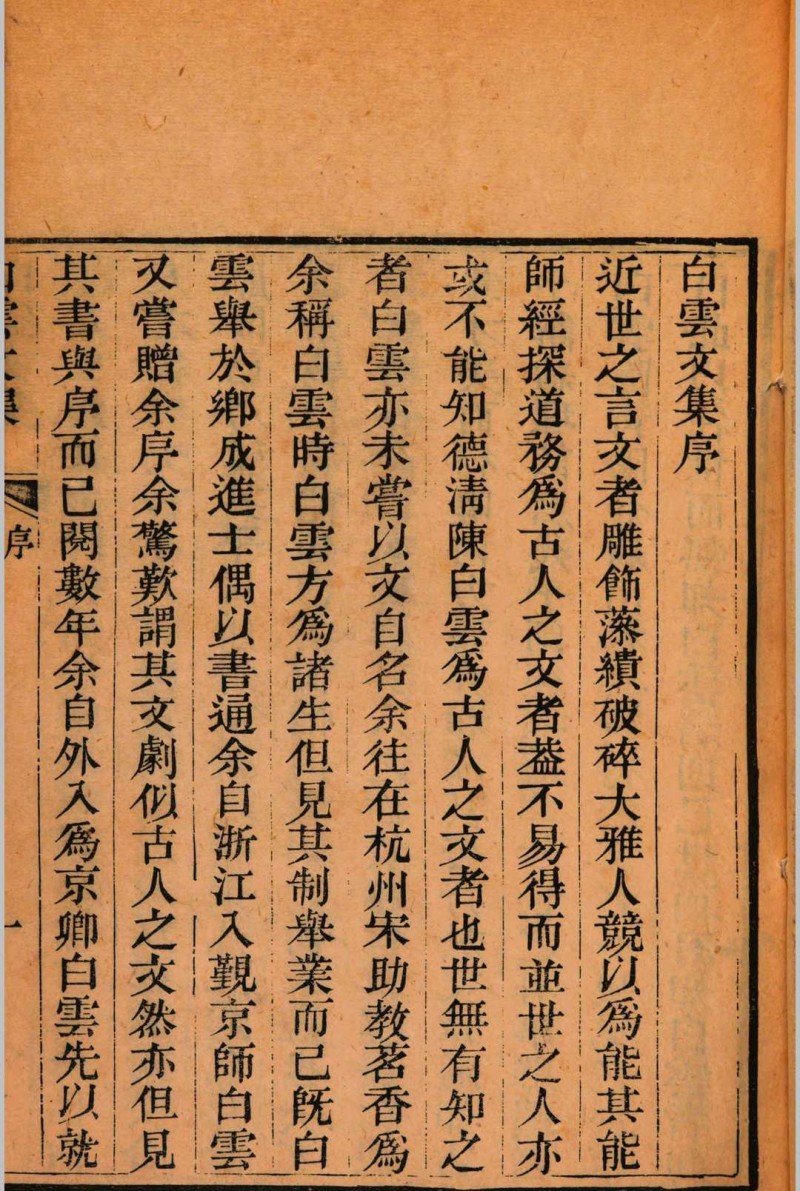 白雲文集序
近世之言文者雕飾藻繢破碎大雅人競以為能其能
師經探道務為古人之文者葢不易得而並世之人亦
或不能知德清陳白雲為古人之文者也世無有知之
者白雲亦未嘗以文自名余往在杭州宋助教茗香為
余稱白雲時白雲方為諸生但見其制舉業而已旣白
雲舉於鄉成進士偶以書通余自浙江入覲京師白雲
又嘗贈余序余驚歎謂其文劇似古人之文然亦但見
其書與序而已閱數年余自外入為京卿白雲先以就
白雲文集 序 一